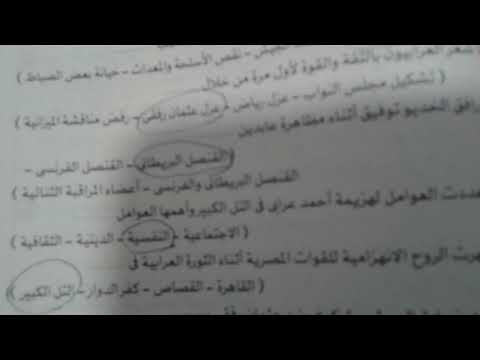 الجيش - نقص الأسلحة والمعدات - خيانة بعض الضباط )
شعر العرابيون بالثقة والقوة لأول مرة من خلال
( تشكيل مجلس النواب - عزل رياض - عزل عثمان رفقى - رفض مناقشة الميزانية )
رافق الخديو توفيق أثناء مظاهرة عابدين
( القنصل البريطانى - القنصل الفرنسى -
القنصل البريطانى والفرنسى - أعضاء المراقبة الثنائية )
عددت العوامل لهزيمة أحمد عرابى فى التل الكبير وأهمها العوامل
( الاجتماعية - النفسية - الدينية - الثقافية )
الروح الانهزامية للقوات المصرية أثناء الثورة العرابية فى
( القاهرة - القصاص - كفر الدوار - التل الكبير )